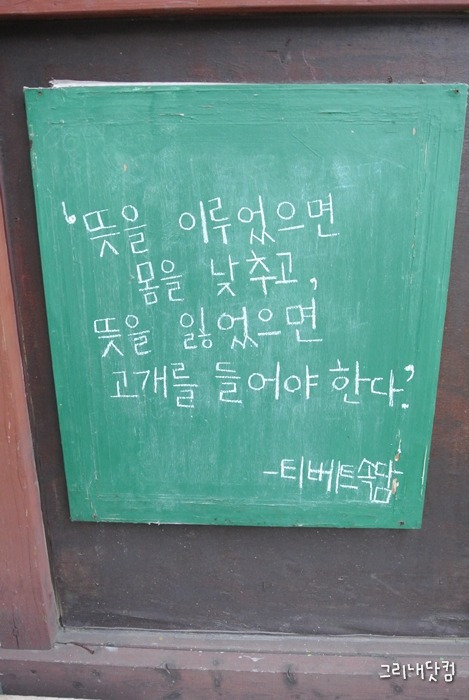 '뜻을 이루었으면
몸을 낮추고,
뜻을 잃었으면
고개를 들어야 한다.'
-티베트속담
그리내닷컴